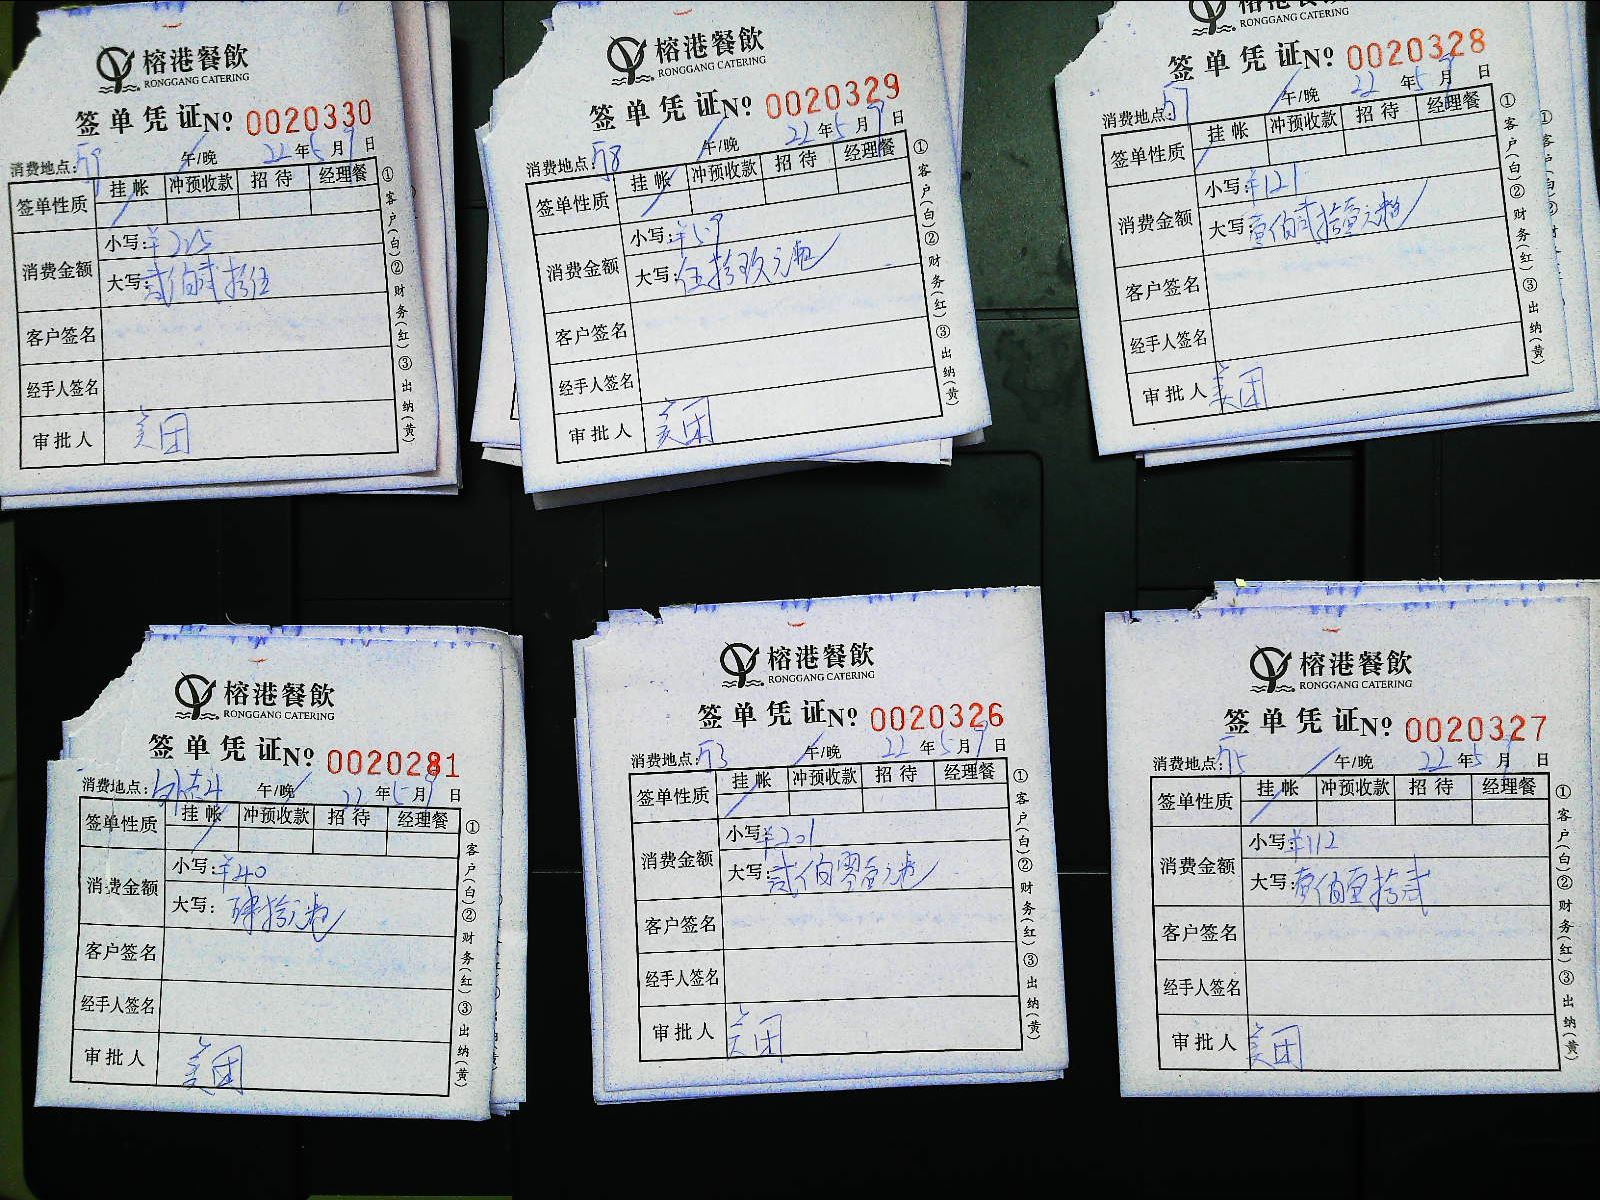 榕港餐飲
RONGGANG CATERING
签单凭证 Nº 0020330
消费地点: 午/晚 22年5月9日
签单性质 挂帐 冲预收款 招待 经理餐
消费金额 小写:¥225
大写:贰佰贰拾伍
客户签名
经手人签名
审批人 美团
①客户(白)②财务(红)③出纳(黄)
榕港餐飲
RONGGANG CATERING
签单凭证 Nº 0020329
消费地点: 午/晚 22年5月9日
签单性质 挂帐 冲预收款 招待 经理餐
消费金额 小写:¥59
大写:伍拾玖元整
客户签名
经手人签名
审批人 美团
①客户(白)②财务(红)③出纳(黄)
榕港餐飲
RONGGANG CATERING
签单凭证 Nº 0020328
消费地点: 午/晚 22年5月9日
签单性质 挂帐 冲预收款 招待 经理餐
消费金额 小写:¥121
大写:壹佰贰拾壹元整
客户签名
经手人签名
审批人 美团
①客户(白)②财务(红)③出纳(黄)
榕港餐飲
RONGGANG CATERING
签单凭证 Nº 0020281
消费地点: 午/晚 22年5月9日
签单性质 挂帐 冲预收款 招待 经理餐
消费金额 小写:¥40
大写:肆拾元整
客户签名
经手人签名
审批人 美团
①客户(白)②财务(红)③出纳(黄)
榕港餐飲
RONGGANG CATERING
签单凭证 Nº 0020326
消费地点: 午/晚 22年5月9日
签单性质 挂帐 冲预收款 招待 经理餐
消费金额 小写:¥201
大写:贰佰零壹元整
客户签名
经手人签名
审批人 美团
①客户(白)②财务(红)③出纳(黄)
榕港餐飲
RONGGANG CATERING
签单凭证 Nº 0020327
消费地点: 午/晚 22年5月9日
签单性质 挂帐 冲预收款 招待 经理餐
消费金额 小写:¥112
大写:壹佰壹拾贰
客户签名
经手人签名
审批人 美团
①客户(白)②财务(红)③出纳(黄)